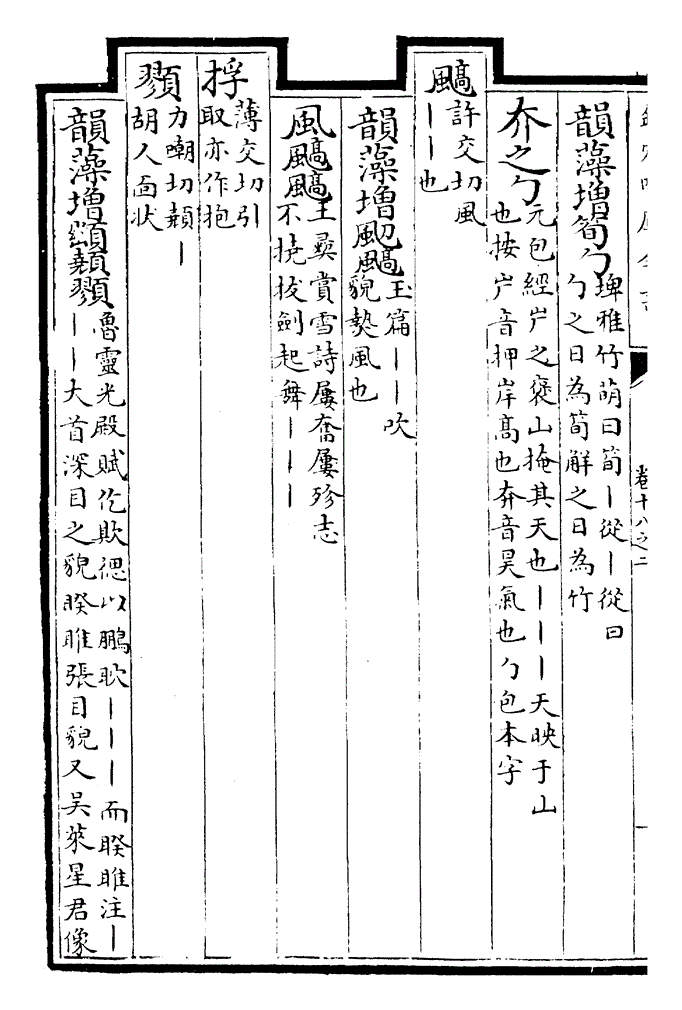 卷十八之二
韻藻增筍勹埤雅竹萌曰筍丨從丨從日
勹之日為筍解之日為竹
夰之勹元包經屵之㢡山掩其天也丨丨丨天映于山
也按屵音押岸高也夰音昊氣也勹包本字
䬘許交切風
丨丨也
韻藻增颲䬘玉篇丨丨吹
貌熱風也
風䬘䬘王彝賞雪詩屢奮屢殄志
不撓拔劍起舞丨丨丨
捊薄交切引
取亦作抱
顟力嘲切顤丨
胡人面狀
韻藻增䫜顤顟魯靈光殿賦仡欺𢠵以鵰䀕丨丨丨而睽睢注丨
丨丨大首深目之貌睽睢張目貌又吳萊星君像